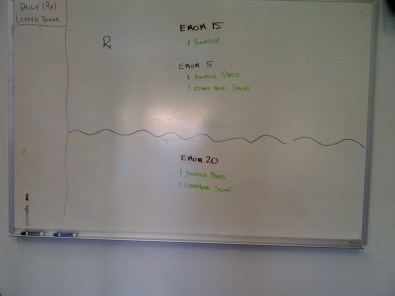 DAILY (RX)
LEADER BOARD
R
EMOM 15
1 SNATCH
EMOM 5
1 SNATCH PRESS
1 OVERHEAD SQUAT
EMOM 20
1 SNATCH PRESS
1 OVERHEAD SQUAT